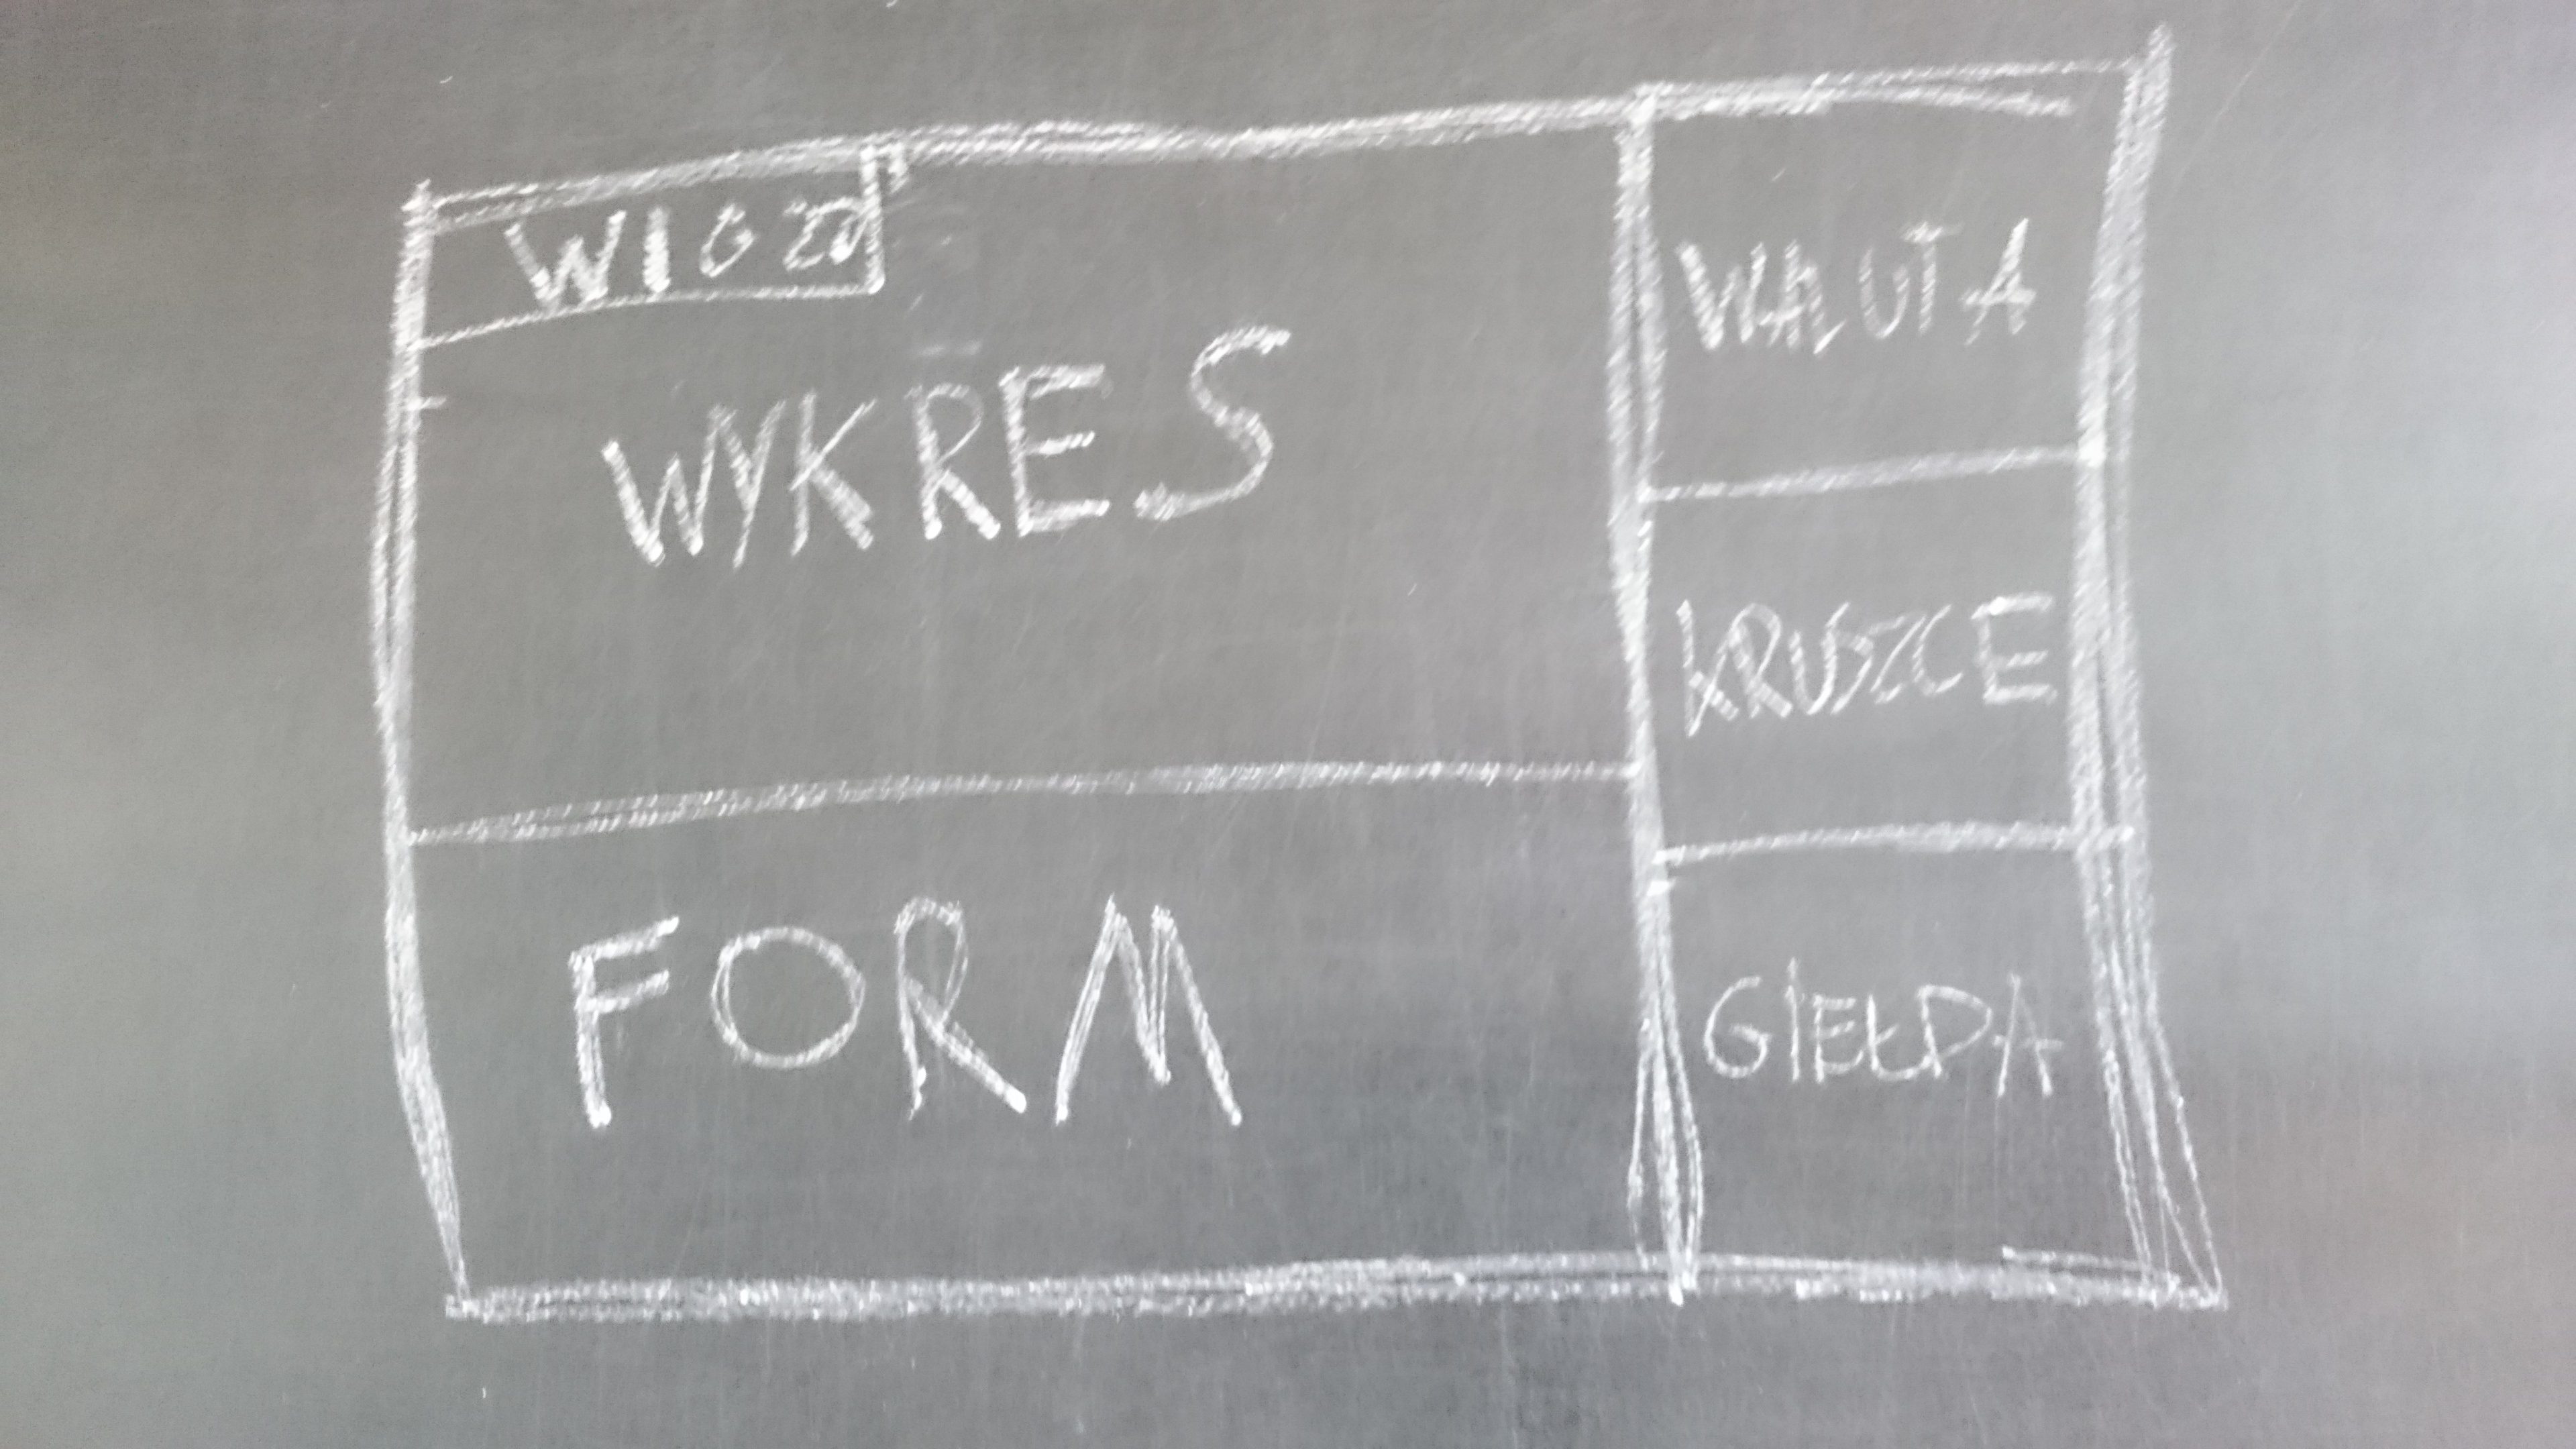 WYKRES
FORM
WALUTA
KRUSZCE
GIEŁDA